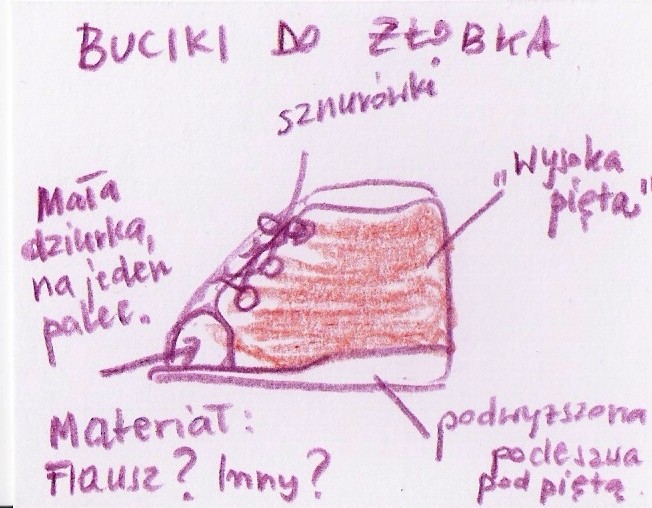 BUCIKI DO ŻŁOBKA
sznurówki
"Wysoka
pięta"
Mała
dziurka,
na jeden
palec.
podwyższona
podeszwa
pod piętą.
Materiał:
Flausz? Inny?